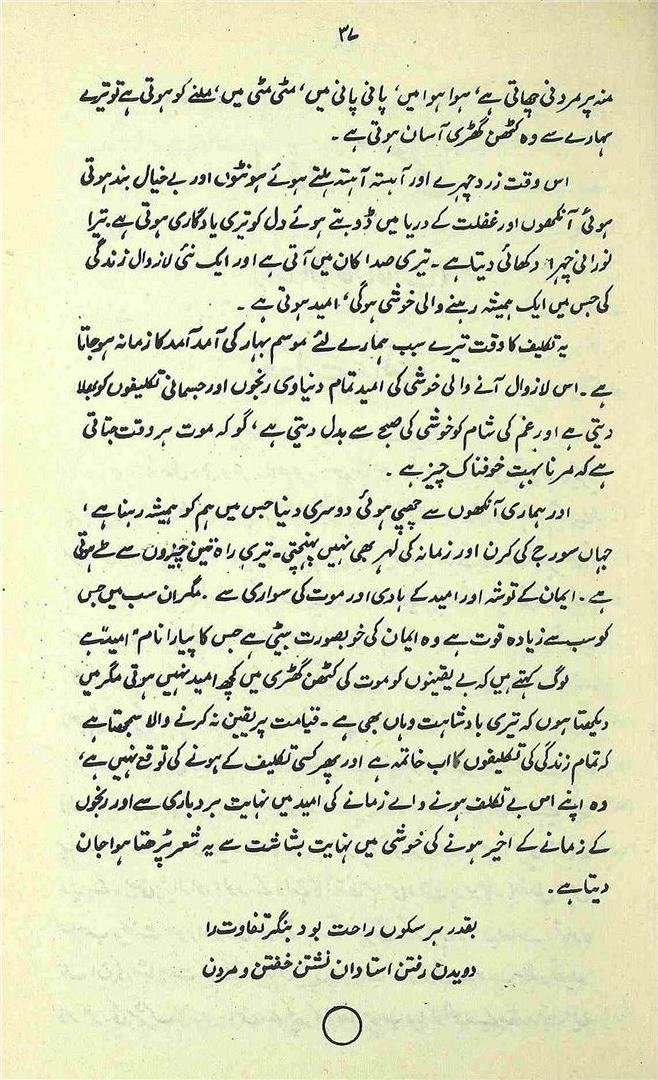 ۳۷
منہ پر مردنی چھاتی ہے‘ ہوا ہوا میں‘ پانی پانی میں‘ مٹی مٹی میں‘ ملنے کو ہوتی ہے تو تیرے
سہارے سے وہ کٹھن گھڑی آسان ہوتی ہے ۔
اس وقت زرد چہرے اور آہستہ آہستہ ہلتے ہوئے ہونٹوں اور بے خیال بند ہوتی
ہوئی آنکھوں اور غفلت کے دریا میں ڈوبتے ہوئے دل کو تیری یادگاری ہوتی ہے ۔ تیرا
نورانی چہرہ دکھائی دیتا ہے ۔ تیری صدا کان میں آتی ہے اور ایک نئی لازوال زندگی
کی جس میں ایک ہمیشہ رہنے والی خوشی ہوگی‘ امید ہوتی ہے ۔
یہ تکلیف کا وقت تیرے سبب ہمارے لئے موسم بہار کی آمد آمد کا زمانہ ہوجاتا
ہے ۔ اس لازوال آنے والی خوشی کی امید تمام دنیاوی رنجوں اور جسمانی تکلیفوں کو بھلا
دیتی ہے اور غم کی شام کو خوشی کی صبح سے بدل دیتی ہے‘ گو کہ موت ہر وقت جتاتی
ہے کہ مرنا بہت خوفناک چیز ہے ۔
اور ہماری آنکھوں سے چھپی ہوئی دوسری دنیا جس میں ہم کو ہمیشہ رہنا ہے‘
جہاں سورج کی کرن اور زمانہ کی لہر بھی نہیں پہنچتی ۔ تیری راہ تین چیزوں سے طے ہوتی
ہے ۔ ایمان کے توشہ اور امید کے ہادی اور موت کی سواری سے ۔ مگر ان سب میں جس
کو سب سے زیادہ قوت ہے وہ ایمان کی خوبصورت بیٹی ہے جس کا پیارا نام ”امید“ ہے
لوگ کہتے ہیں کہ بے یقینوں کو موت کی کٹھن گھڑی میں کچھ امید نہیں ہوتی مگر میں
دیکھتا ہوں کہ تیری بادشاہت وہاں بھی ہے ۔ قیامت پر یقین نہ کرنے والا سمجھتا ہے
کہ تمام زندگی کی تکلیفوں کا اب خاتمہ ہے اور پھر کسی تکلیف کے ہونے کی توقع نہیں ہے‘
وہ اپنے اس بے تکلف ہونے والے زمانے کی امید میں نہایت بردباری سے اور رنجوں
کے زمانے کے اخیر ہونے کی خوشی میں نہایت بشاشت سے یہ شعر پڑھتا ہوا جان
دیتا ہے ۔
بقدر ہر سکوں راحت بود بنگر تفاوت را
دویدن رفتن استادان نشتن خفتن و مردن